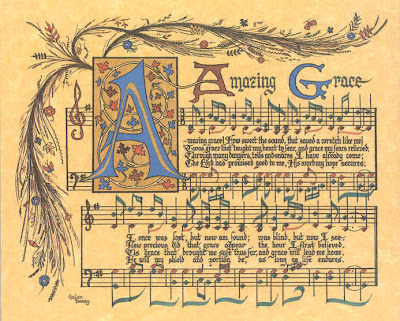 Amazing Grace
A
mazing grace! How sweet the sound, that saved a wretch like me!
'Twas grace that taught my heart to fear, and grace my fears relieved;
Through many dangers, toils and snares I have already come;
The Lord has promised good to me, His word my hope secures;
I once was lost, but now am found; was blind, but now I see.
How precious did that grace appear the hour I first believed.
'Tis grace that brought me safe thus far, and grace will lead me home.
He will my shield and portion be, as long as life endures.